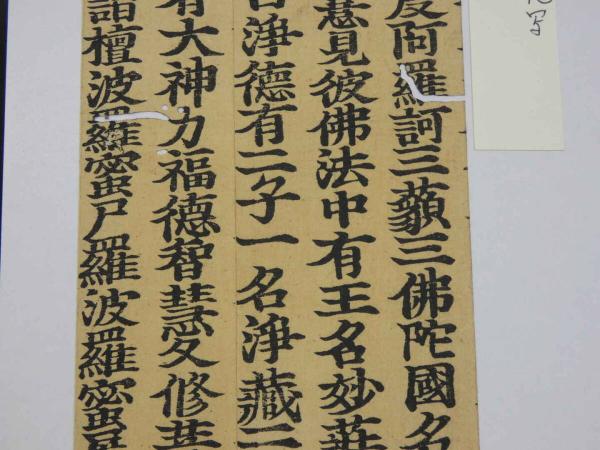 阿羅訶三藐三佛陀國名
慧見彼佛法中有王名妙莊
淨德有二子一名淨藏二
有大神力福德智慧久修菩
詣檀波羅蜜尸羅波羅蜜